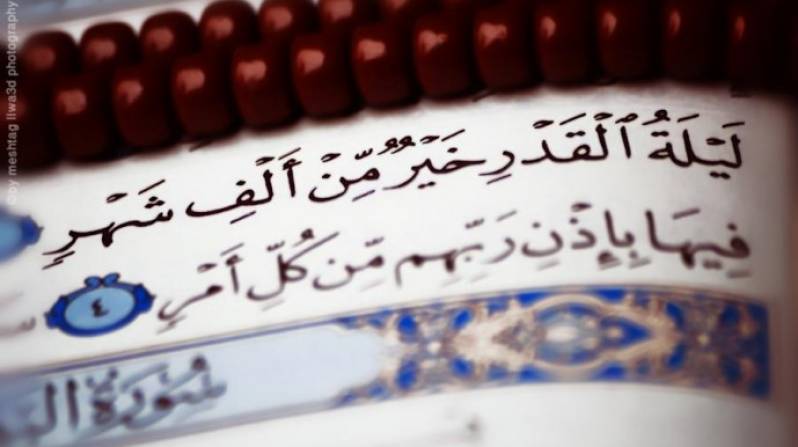 لَيْلَةُ ٱلْقَدْرِ خَيْرٌ مِّنْ أَلْفِ شَهْرٍ
فِيهَا بِإِذْنِ رَبِّهِم مِّن كُلِّ أَمْرٍ ٤
سُورَةُ
©by meshtag llwa3d photography